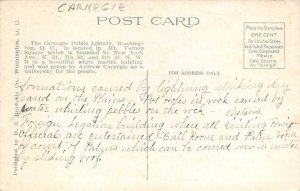 CARNEGIE
POST CARD
The Carnegie Public Library, Washington,
D. C., is located in Mt. Vernon
Square which is bounded by New York
Ave., K St., 7th St. and 9th St. N. W.
It is a beautiful white marble building
and was given by Andrew Carnegie as a
university for the people.
FOR ADDRESS ONLY
Place the Stamp here
ONE CENT
for United States
and Island Possessions
Cuba, Canada and
Mexico
TWO CENTS
for Foreign
Formations caused by lightning striking dry
sand on the Plains. Pot holes in rock caused by
water whirling pebbles on the rock
Foreign Legation building where all visiting foreign
officials are entertained Ball Room and Palm room
a court of Palms which can be covered over in winter
by sliding roof